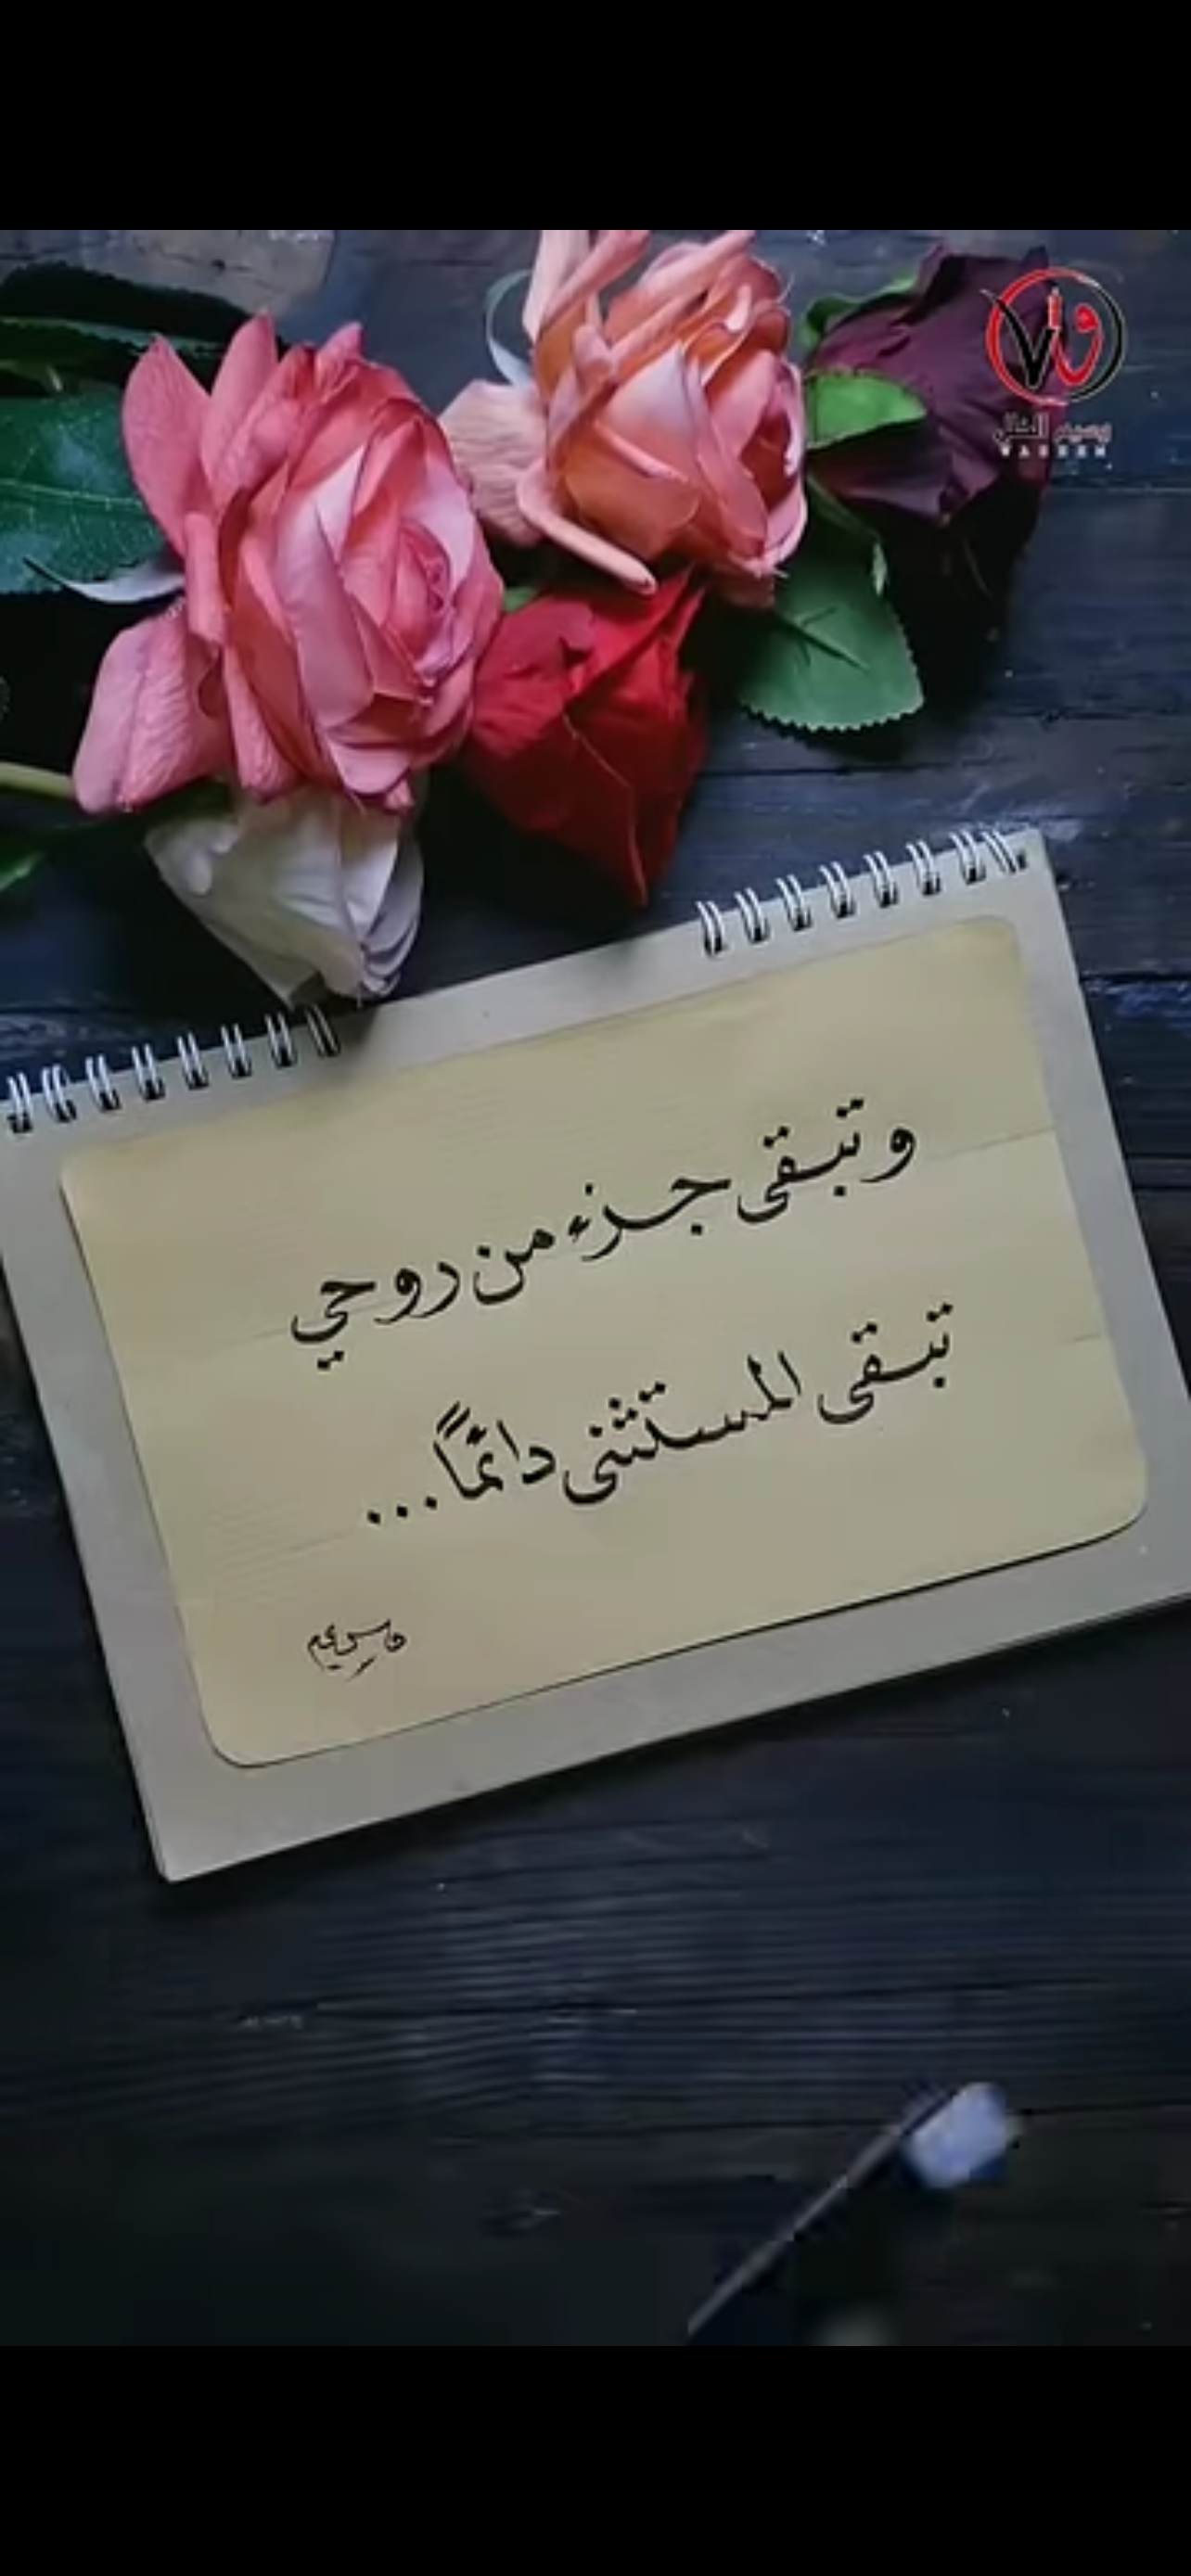 وسيم
WASEEM
و تبقى جزء من روحي
تبقى المستثنى دائمًا...